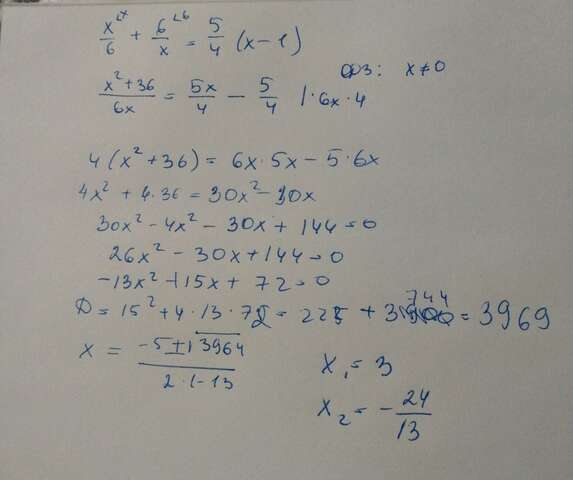 x^x/6 + 6^6/x = 5/4 (x-1)
одз: x ≠ 0
x²+36/6x = 5x/4 - 5/4 | · 6x · 4
4(x²+36) = 6x·5x - 5·6x
4x² + 4·36 = 30x² - 30x
30x² - 4x² - 30x + 144 = 0
26x² - 30x + 144 = 0
-13x² + 15x + 72 = 0
D = 15² + 4·13·72 = 225 + 3744 = 3969
x = -5±√3964/2·(-13
x₁ = 3
x₂ = -24/13